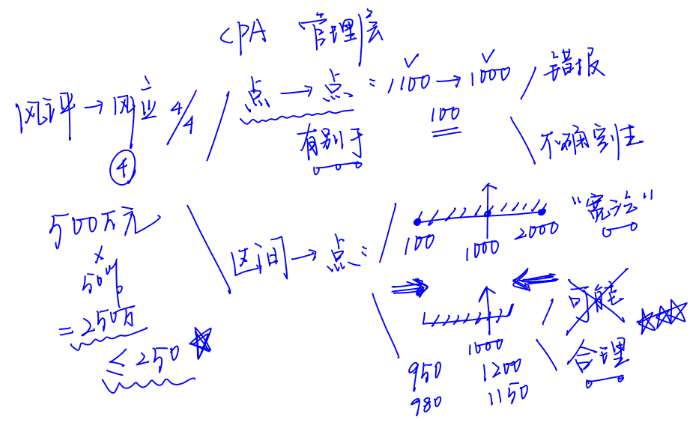 CPA 管理层
风评→风应 4/4
④
点→点: 1100→1000
100
有别于
错报
不确定性
500万元
×
50%
=250万
≤250
区间→点:
100 1000 2000
"宽泛"
1000
950 1200
980 1150
可能
合理